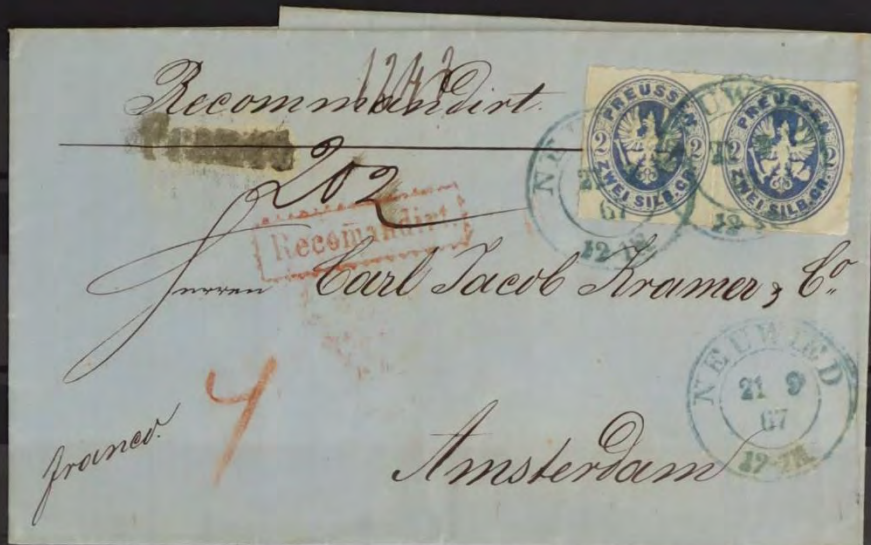 1242
Recommandirt.
202
Recomandirt.
PREUSSEN
2 2
ZWEI SILB.GR.
PREUSSEN
2 2
ZWEI SILB.GR.
67
Herren Carl Jacob Kramer & Co.
NEUWIED
21 9
67
franco.
Amsterdam